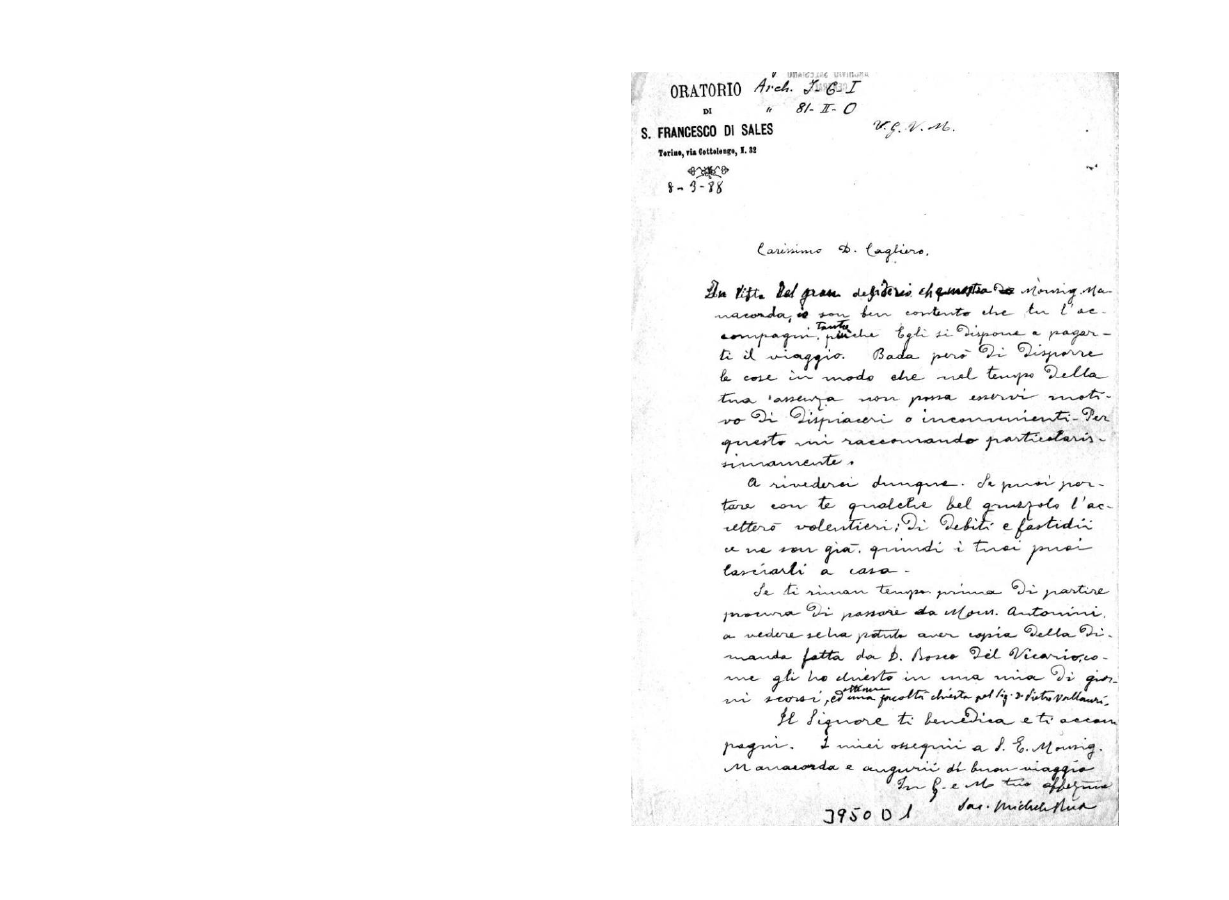 ORATORIO Arch. I-G-I
DI " 81-II-O
S. FRANCESCO DI SALES V. G. V. M.
Torino, via Cottolengo, N. 32
8-3-88
Carissimo D. Cagliero,
In vista del gran desiderio che mostra Monsig. Ma-
nacorda, io son ben contento che tu l'ac-
compagni, tanto più che Egli si dispone a pagar-
ti il viaggio. Bada però di disporre
le cose in modo che nel tempo della
tua assenza non possa esservi moti-
vo di dispiaceri o inconvenienti. Per
questo mi raccomando particolaris-
simamente.
A rivederci dunque. Se puoi por-
tare con te qualche bel gruzzolo l'ac-
cetterò volentieri; di debiti e fastidii
ce ne son già, quindi i tuoi puoi
lasciarli a casa.
Se ti riman tempo prima di partire
procura di passare da Mons. Antonini,
a vedere se ha potuto aver copia della di-
manda fatta da D. Bosco del Vicario, co-
me gli ho chiesto in una mia di gior-
ni scorsi, ed ottenere una facoltà chiesta pel Sig. D. Pietro Vallauri.
Il Signore ti benedica e ti accom
pagni. I miei ossequii a S. E. Monsig.
Manacorda e augurii di buon viaggio
In G. e M. tuo affez.mo
Sac. Michele Rua
3950 D 1